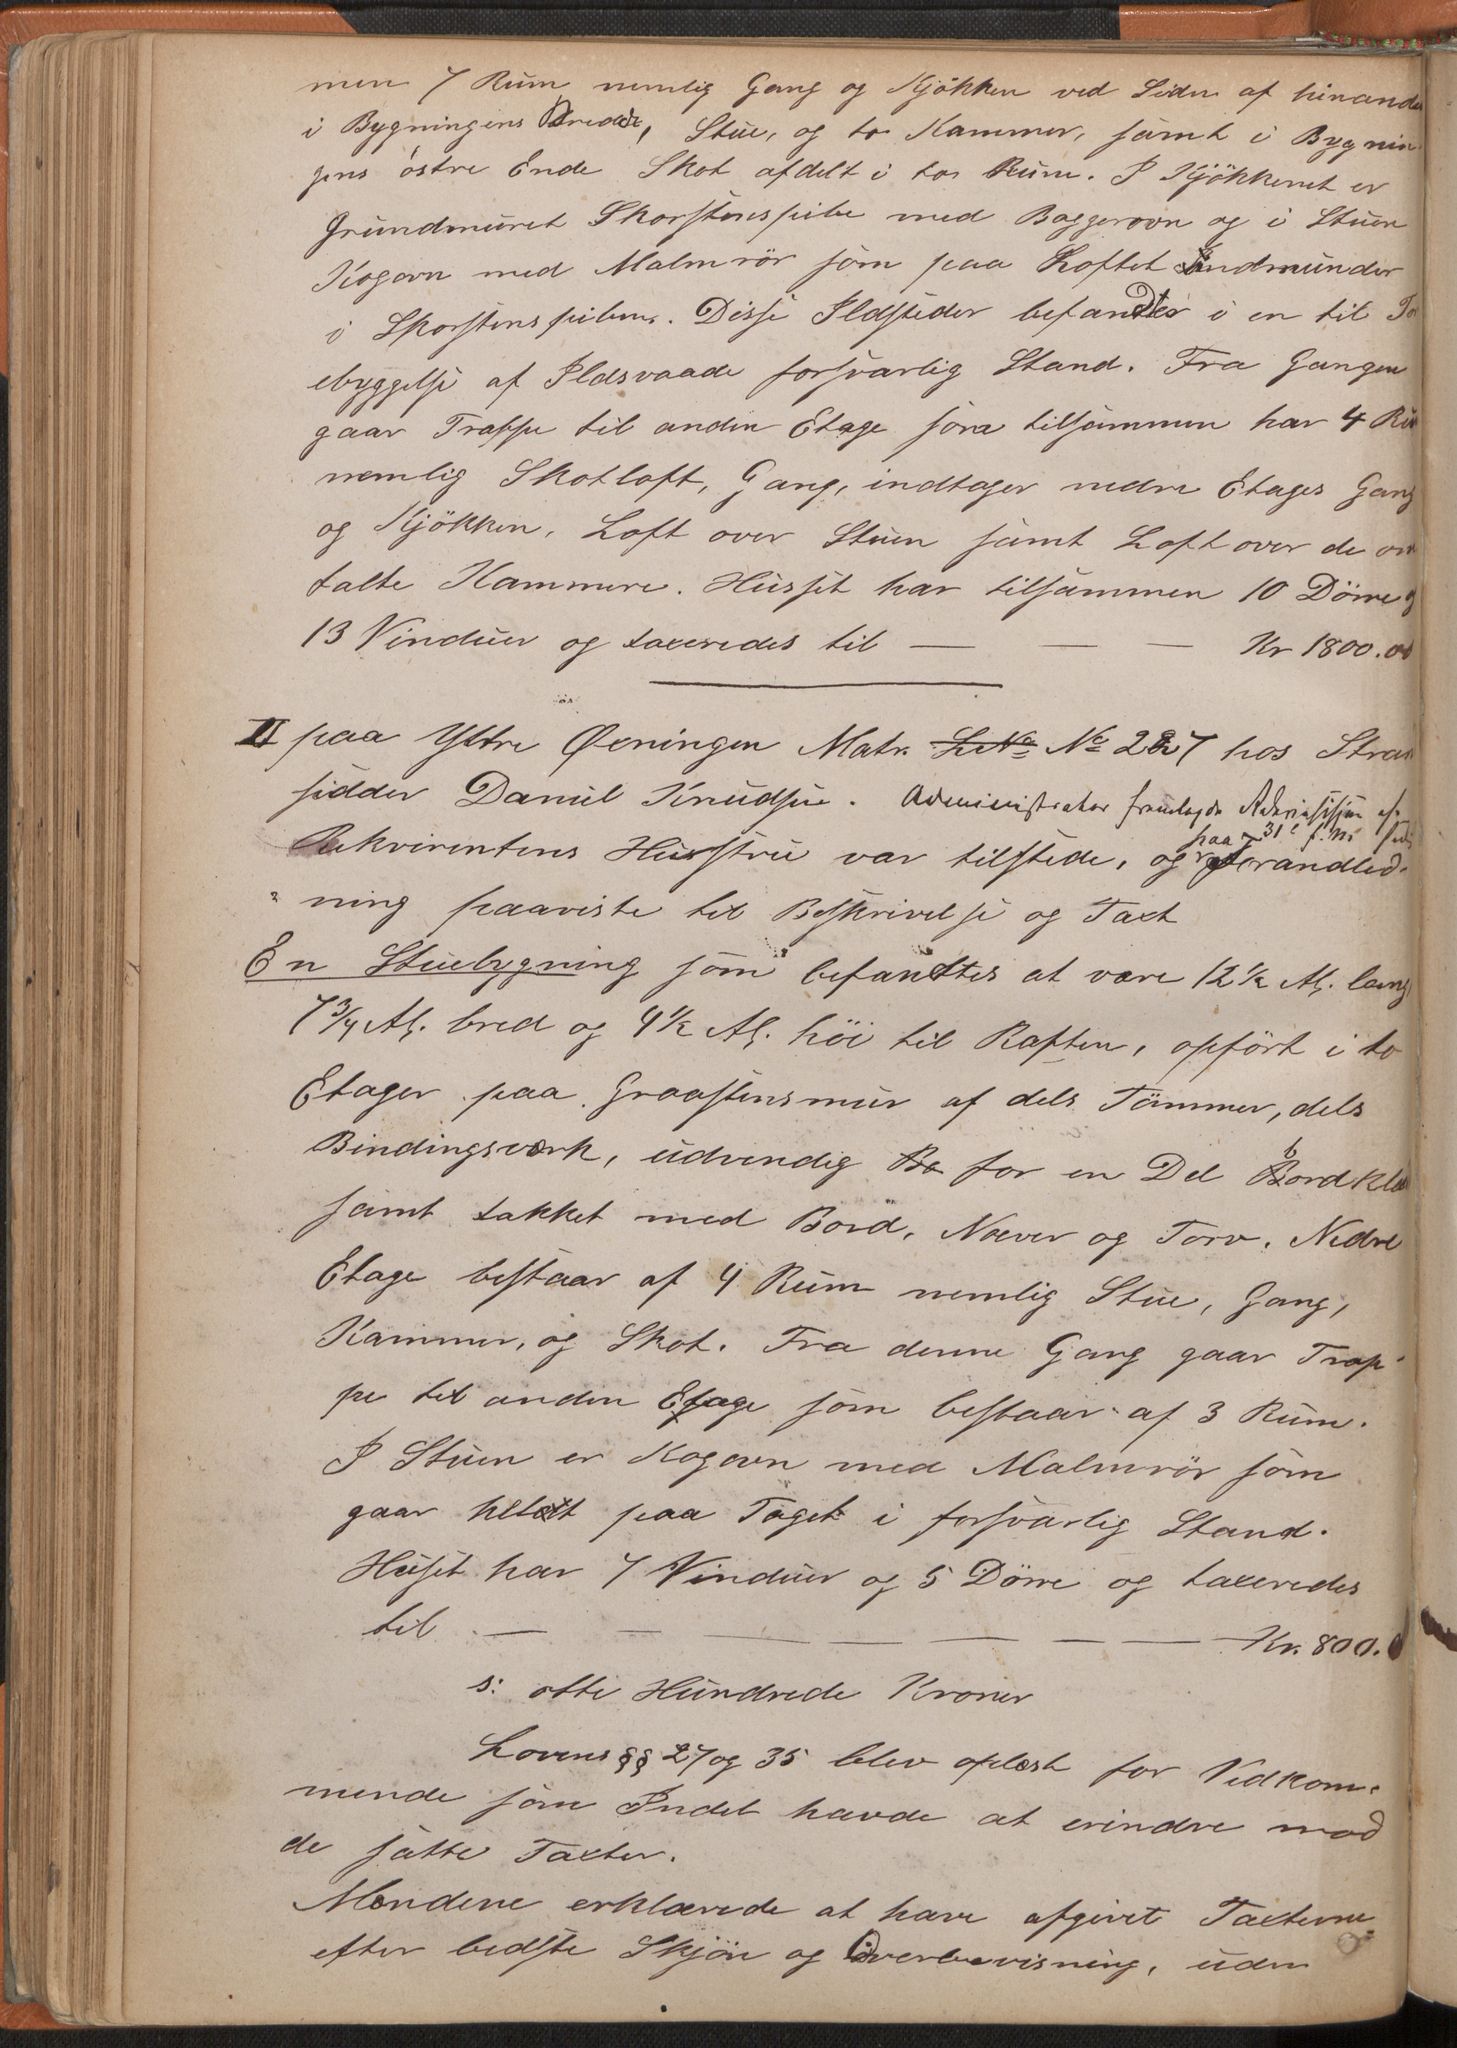 men 7 Rum nemlig Gang og Kjökken ved Siden af hinanden
i Bygningens Bredde, Stue, og to Kammer, samt i Bygnin
gens östre Ende Skot afdelt i to Rum. I Kjökkenet er
grundmuret Skorstenspibe med Baggerovn og i Stuen
Kogovn med Malmrör som paa Loftet indmunder
i Skorstenspiben. Disse Ildsteder befandtes i en til Fo
ebyggelse af Ildsvaade forsvarlig Stand. Fra Gangen
gaar Trappe til anden Etage som tilsammen har 4 Rum
nemlig Skotloft, Gang, indtager nedre Etages Gang
og Kjökken, Loft over Stuen samt Loft over de om
talte Kammere. Husset har tilsammen 10 Dörre og
13 Vinduer og taxeredes til — — — Kr 1800.00
II paa Yttre Øeningen Matr. L.No No 227 hos Stran
sidder Daniel Knudsen. Administrator fremlagde Rekvisition af
paa 31e f. M.
Rekvirentens Hustru var tilstede, og foranled-
ning paaviste til Beskrivelse og Taxt
En Stuebygning som befandtes at være 12 1/2 Al. lang
7 3/4 Al. bred og 4 1/2 Al. höi til Raften, opfört i to
Etager paa Graastensmur af dels Tömmer, dels
Bindingsværk, udvendig Bo for en Del bordklæ
samt takket med Bord, Næver og Torv. Nedre
Etage bestaar af 4 Rum nemlig Stue, Gang,
Kammer, og Skot. Fra denne Gang gaar Trap-
pe til anden Etage som bestaar af 3 Rum.
I Stuen er Kogovn med Malmrör som
gaar helt paa Taget i forsvarlig Stand.
Huset har 7 Vinduer og 5 Dörre og taxeredes
til — — — — — — — Kr. 800.0
s: otte Hundrede Kroner
Lovens §§ 27 og 35 blev oplæst for Vedkom-
mende som Indet havde at erindre mod
de satte Taxter.
Mændene erklærede at have afgivet Taxterne
efter bedste Skjön og Overbevisning, uden